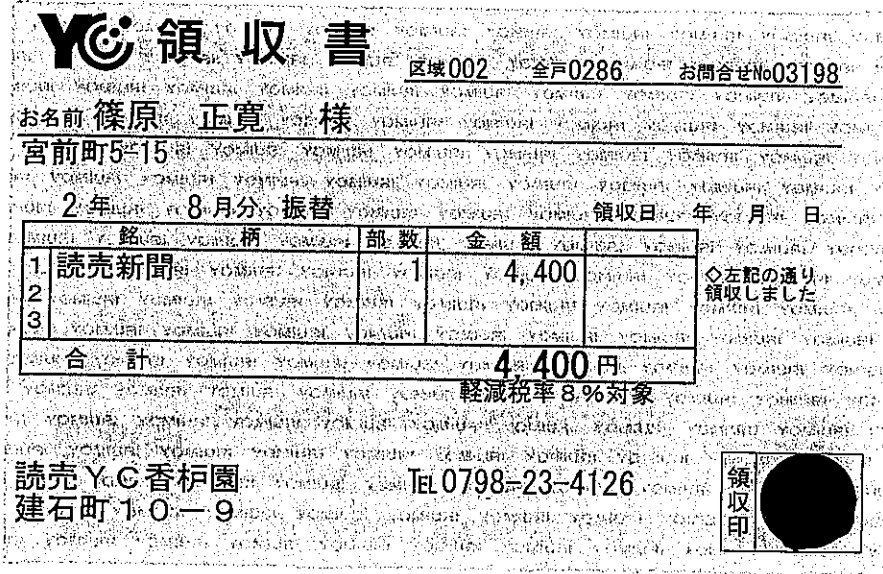 YC 領収書
区域002 全戸0286 お問合せNo03198
お名前 篠原 正寛 様
宮前町5-15
2年 8月分 振替 領収日 年 月 日
銘柄 部数 金額
1 読売新聞 1 4,400
2
3
◇左記の通り
領収しました
合計 4,400円
軽減税率8%対象
読売YC香枦園 TEL 0798-23-4126
建石町10-9
領収印